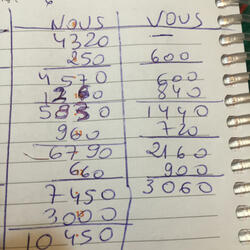 NOUS VOUS
4320 —
250 600
4570 600
1260 840
5830 1440
960 720
6790 2160
660 900
7450 3060
3000
10450